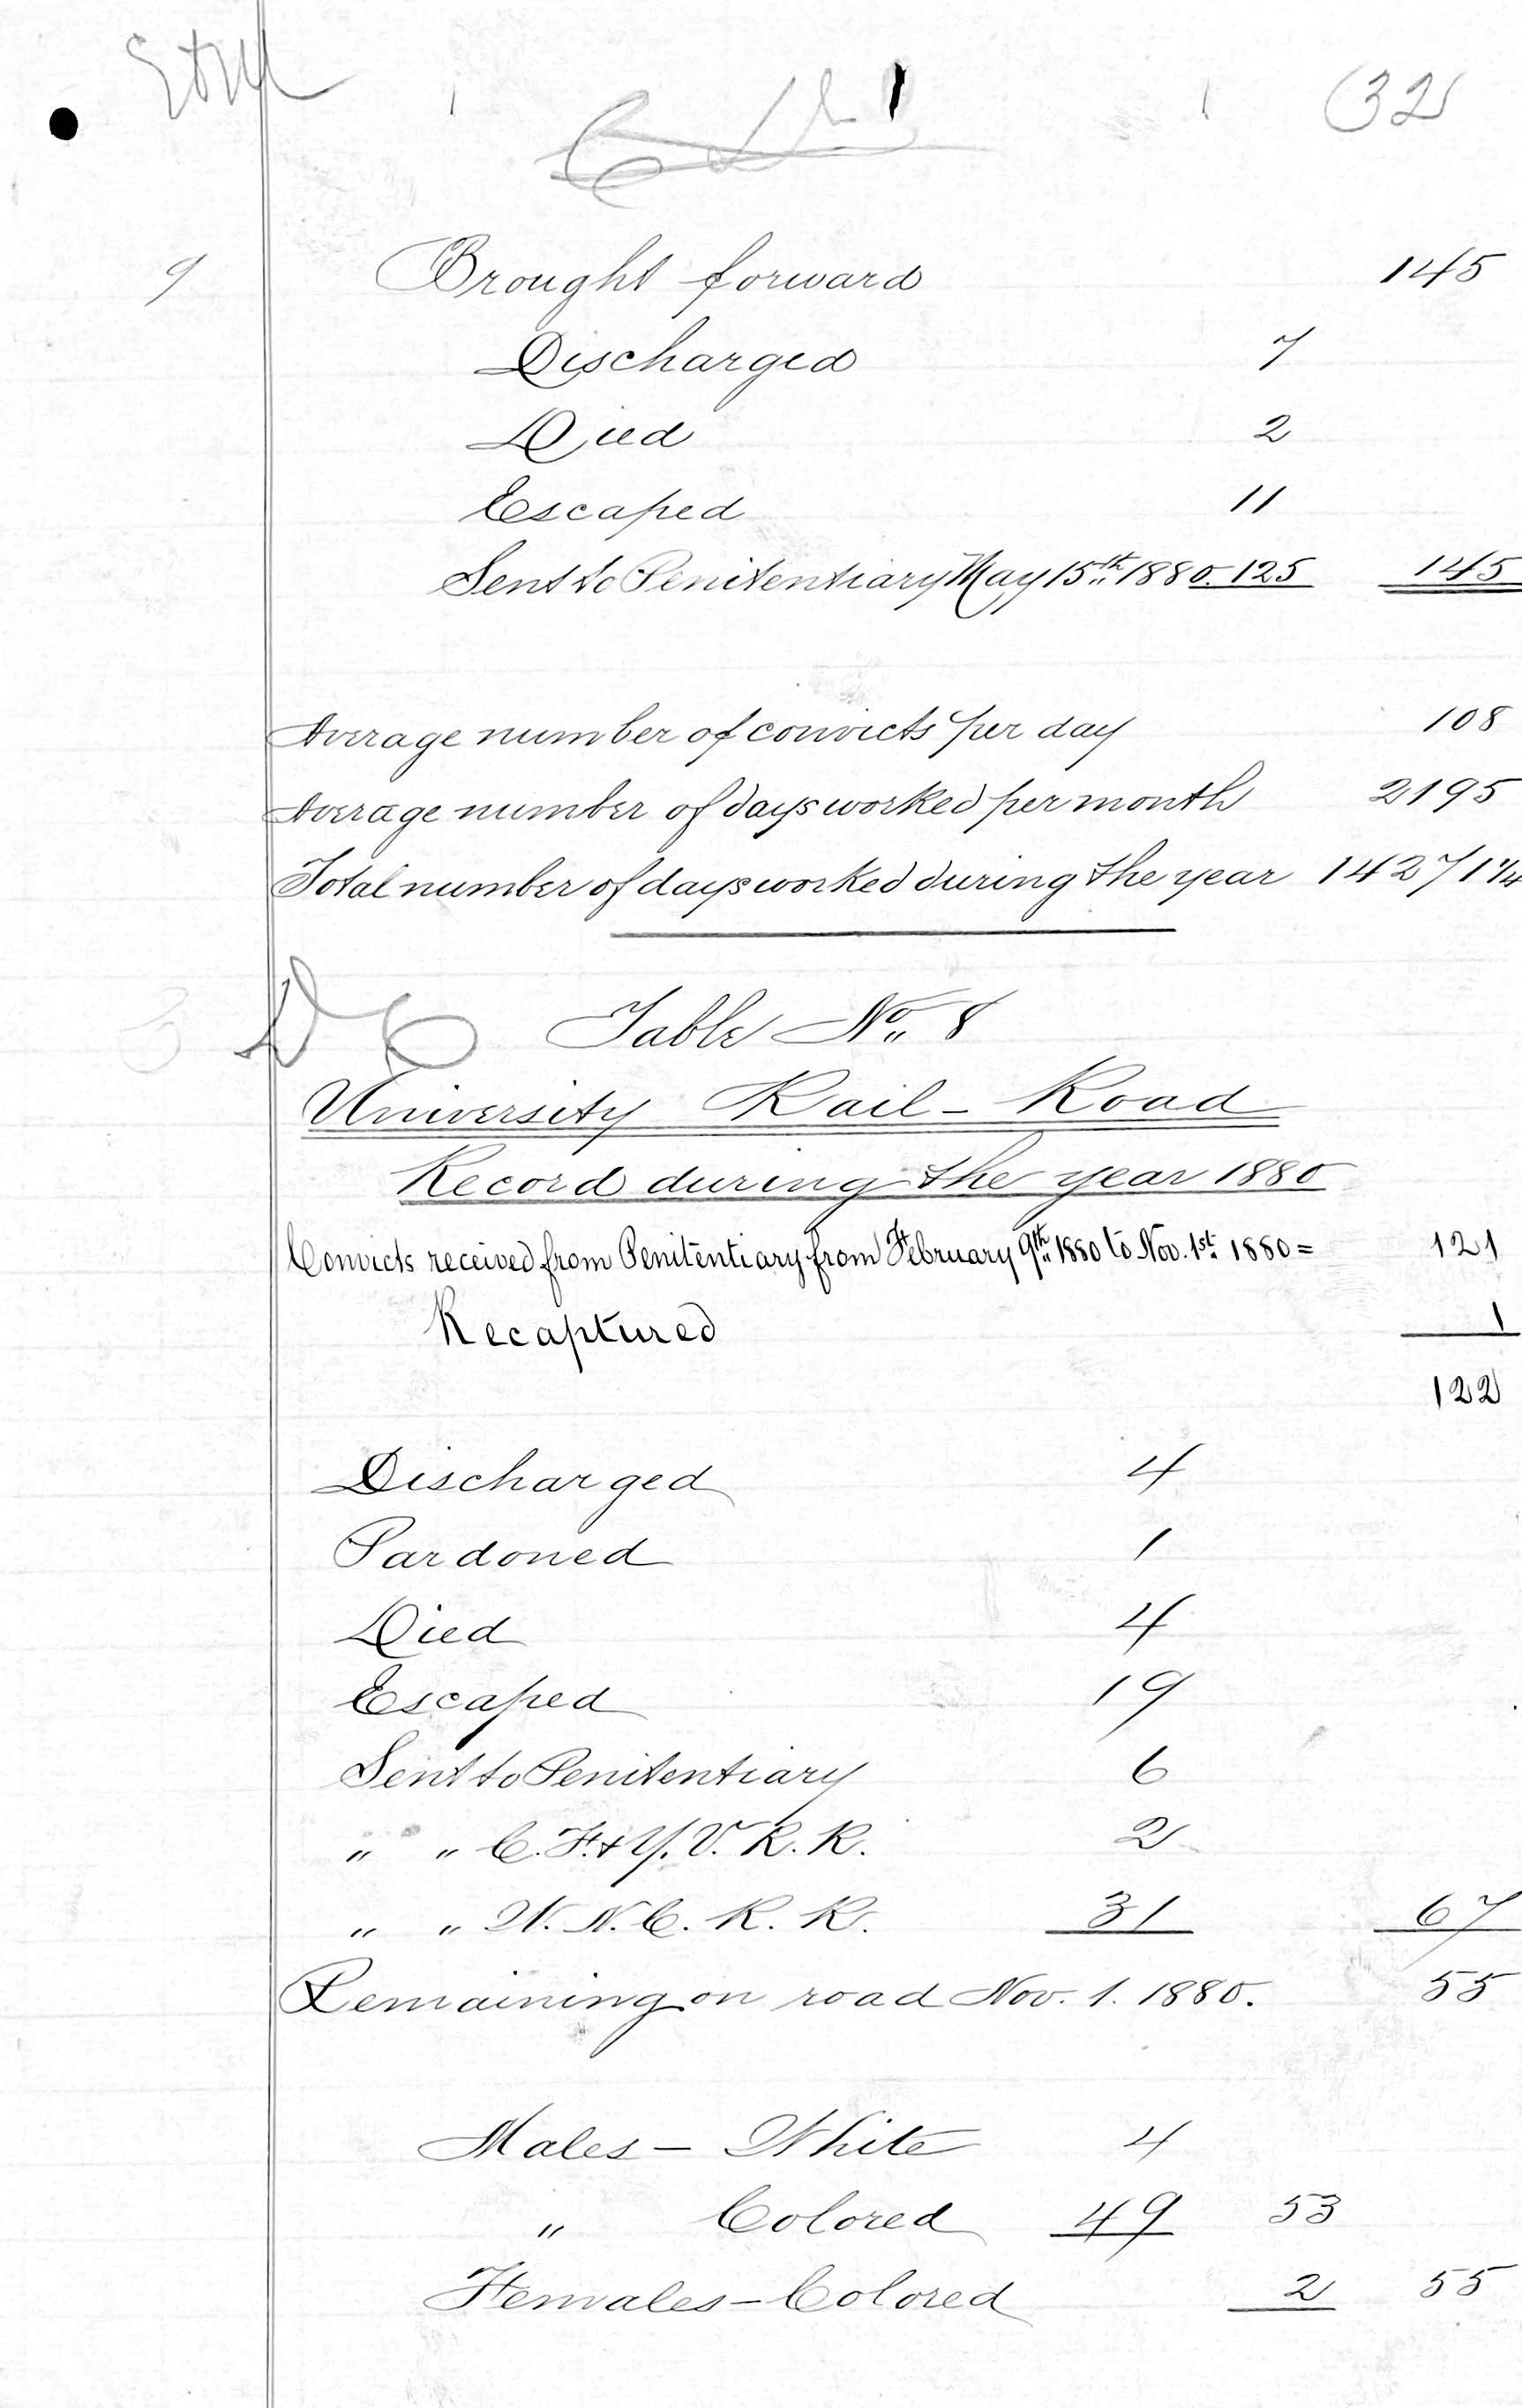 (32)
9 Brought forward 145
Discharged 7
Died 2
Escaped 11
Sent to Penitentiary May 15th 1880. 125 145
Average number of convicts per day 108
Average number of days worked per month 2195
Total number of days worked during the year 14271 1/4
Table No. 8
University Rail-Road
Record during the year 1880
Convicts received from Penitentiary from February 9th 1880 to Nov. 1st 1880 = 121
Recaptured 1
122
Discharged 4
Pardoned 1
Died 4
Escaped 19
Sent to Penitentiary 6
" " C. F. & Y. V. R. R. 2
" " W. N. C. R. R. 31 67
Remaining on road Nov. 1. 1880. 55
Males - White 4
" Colored 49 53
Females - Colored 2 55